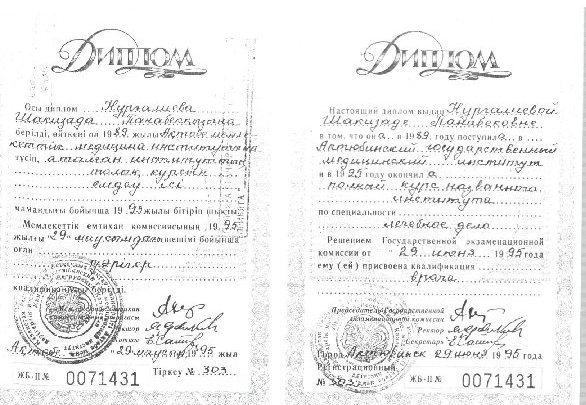 Диплом
Осы диплом Нургалиева
Шакизада
берілді, өйткені ол 1989 жылы Ақтөбе мемле
кеттік медицина институтына
түсіп, аталған институттың
толық курсын
емдеу ісі
мамандығы бойынша 1995 жылы бітіріп шықты
Мемлекеттік емтихан комиссиясының 1995
жылғы "29" маусымдағы шешімі бойынша
оған
дәрігер
квалификациясы берілді.
Ректор
Ақтөбе "29" маусым 1995 жыл
Тіркеу № 303
ЖБ-II № 0071431
Диплом
Настоящий диплом выдан Нургалиевой
Шакизаде
в том, что она в 1989 году поступила в
Актюбинский государственный
медицинский институт
и в 1995 окончила
полный курс названного
института
по специальности
лечебное дело
Решением Государственной экзаменационной
комиссии от "29" июня 1995 года
ему (ей) присвоена квалификация
врача
Председатель Государственной
экзаменационной комиссии
Ректор
Секретарь
Город Актюбинск 29 июня 1995 года
Регистрационный
№ 303
ЖБ-II № 0071431